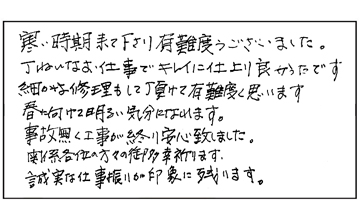 寒い時期来て下さり有難度うございました。
丁ねいなお仕事でキレイに仕上り良かったです
細かな修理もして頂けて有難く思います
春に向けて明るい気分になれます。
事故無く工事が終り安心致しました。
関係各位の方々の御多幸祈ります。
誠実な仕事振りが印象に残ります。